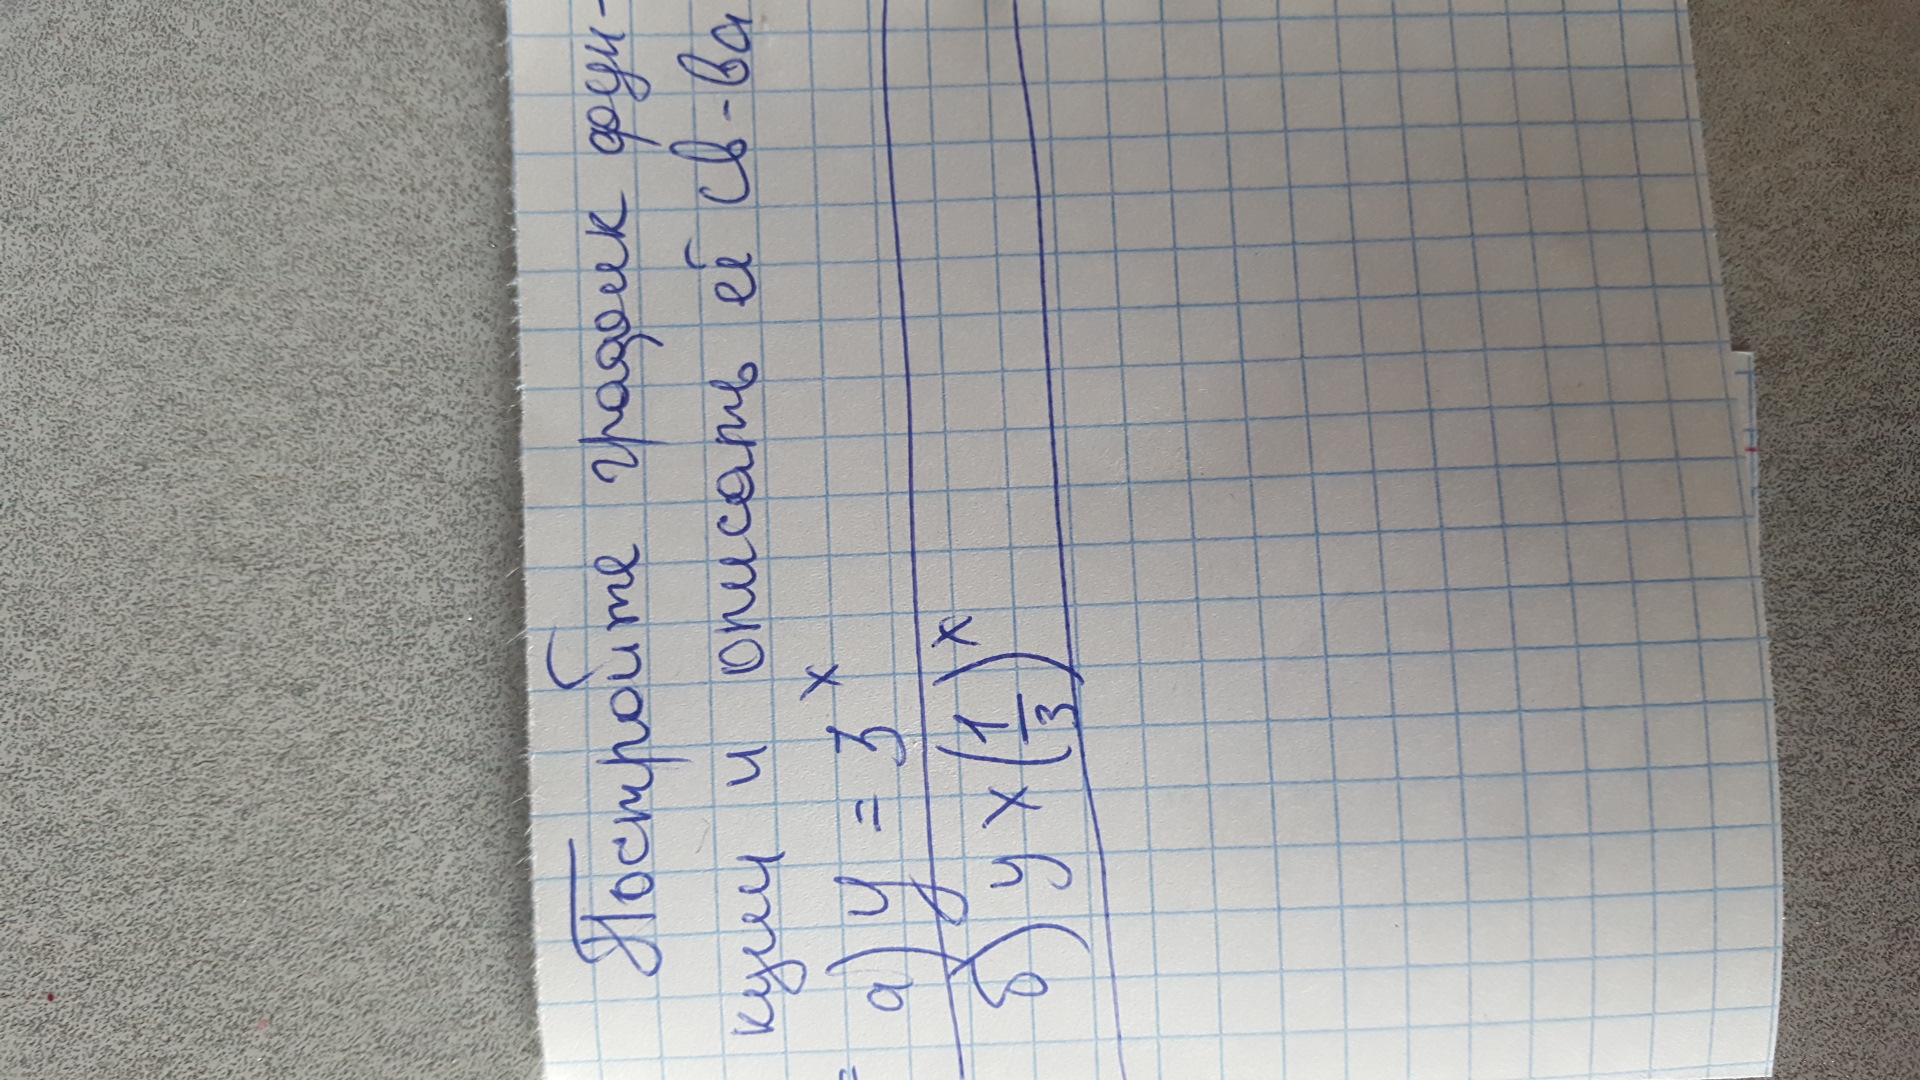 Постройте график функ-
кции и описать её св-ва
а) y = 3^x
б) y x (1/3)^x